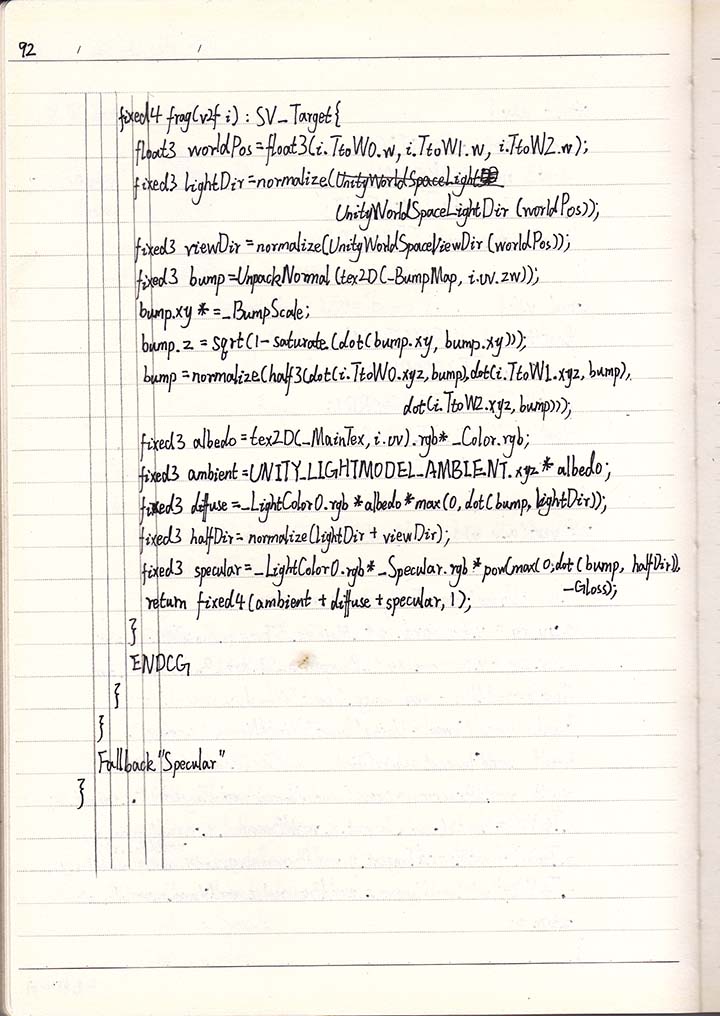 92
fixed4 frag(v2f i) : SV_Target{
float3 worldPos=float3(i.TtoW0.w, i.TtoW1.w, i.TtoW2.w);
fixed3 lightDir=normalize(UnityWorldSpaceLight
UnityWorldSpaceLightDir(worldPos));
fixed3 viewDir=normalize(UnityWorldSpaceViewDir(worldPos));
fixed3 bump=UnpackNormal(tex2D(_BumpMap, i.uv.zw));
bump.xy *=_BumpScale;
bump.z = sqrt(1-saturate(dot(bump.xy, bump.xy)));
bump=normalize(half3(dot(i.TtoW0.xyz,bump),dot(i.TtoW1.xyz, bump),
dot(i.TtoW2.xyz,bump)));
fixed3 albedo=tex2D(_MainTex, i.uv).rgb*_Color.rgb;
fixed3 ambient=UNITY_LIGHTMODEL_AMBIENT.xyz * albedo;
fixed3 diffuse=_LightColor0.rgb*albedo*max(0, dot(bump, lightDir));
fixed3 halfDir=normalize(lightDir + viewDir);
fixed3 specular=_LightColor0.rgb*_Specular.rgb*pow(max(0,dot(bump, halfDir)),
_Gloss);
return fixed4(ambient+diffuse+specular, 1);
}
ENDCG
}
}
Fallback"Specular"
}